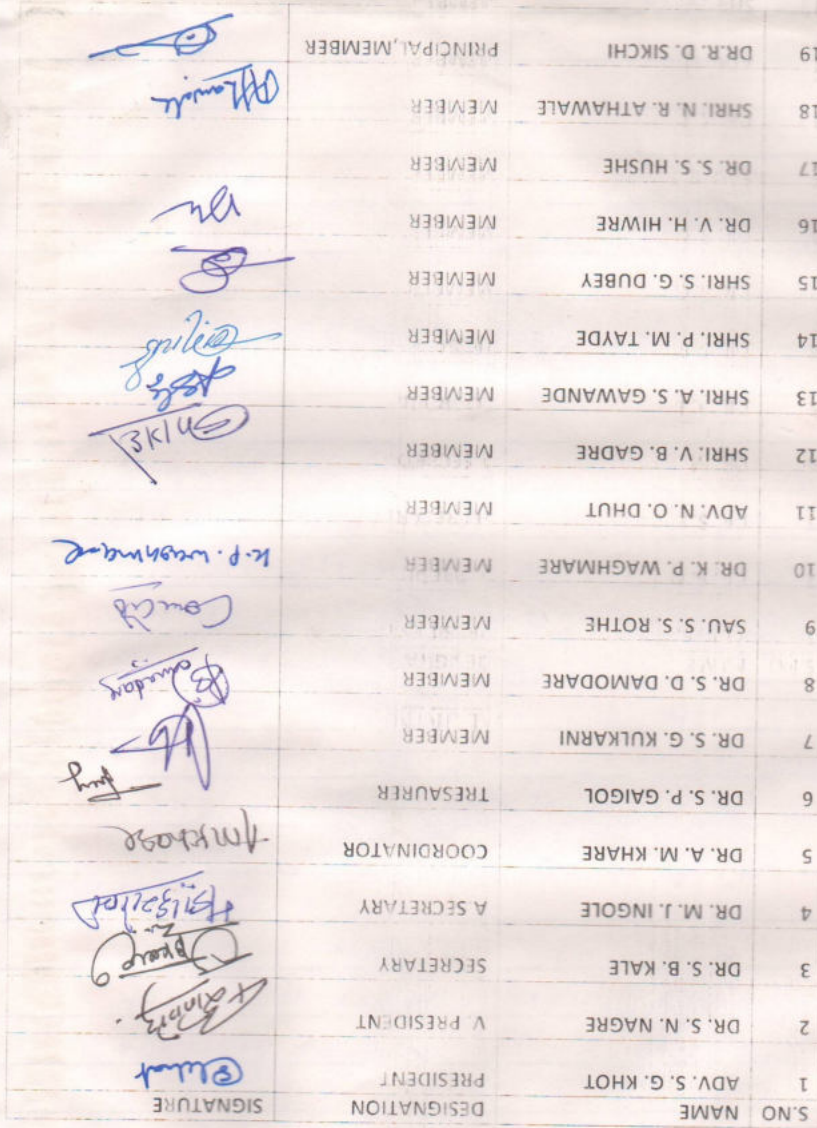 S.NO NAME DESIGNATION SIGNATURE
1 ADV. S. G. KHOT PRESIDENT
2 DR. S. N. NAGRE V. PRESIDENT
3 DR. S. B. KALE SECRETARY
4 DR. M. J. INGOLE A SECRETARY
5 DR. A. M. KHARE COORDINATOR AMKhare
6 DR. S. P. GAIGOL TRESAURER
7 DR. S. G. KULKARNI MEMBER
8 DR. S. D. DAMODARE MEMBER
9 SAU. S. S. ROTHE MEMBER
10 DR. K. P. WAGHMARE MEMBER K.P. Waghmare
11 ADV. N. O. DHUT MEMBER
12 SHRI. V. B. GADRE MEMBER
13 SHRI. A. S. GAWANDE MEMBER
14 SHRI. P. M. TAYDE MEMBER
15 SHRI. S. G. DUBEY MEMBER
16 DR. V. H. HIWRE MEMBER
17 DR. S. S. HUSHE MEMBER
18 SHRI. N. R. ATHAWALE MEMBER
19 DR.R.D. SIKCHI PRINCIPAL,MEMBER